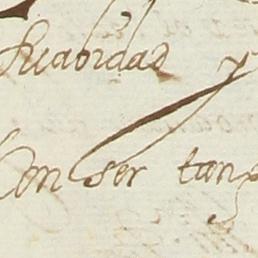 Suavidad y
Con ser tan